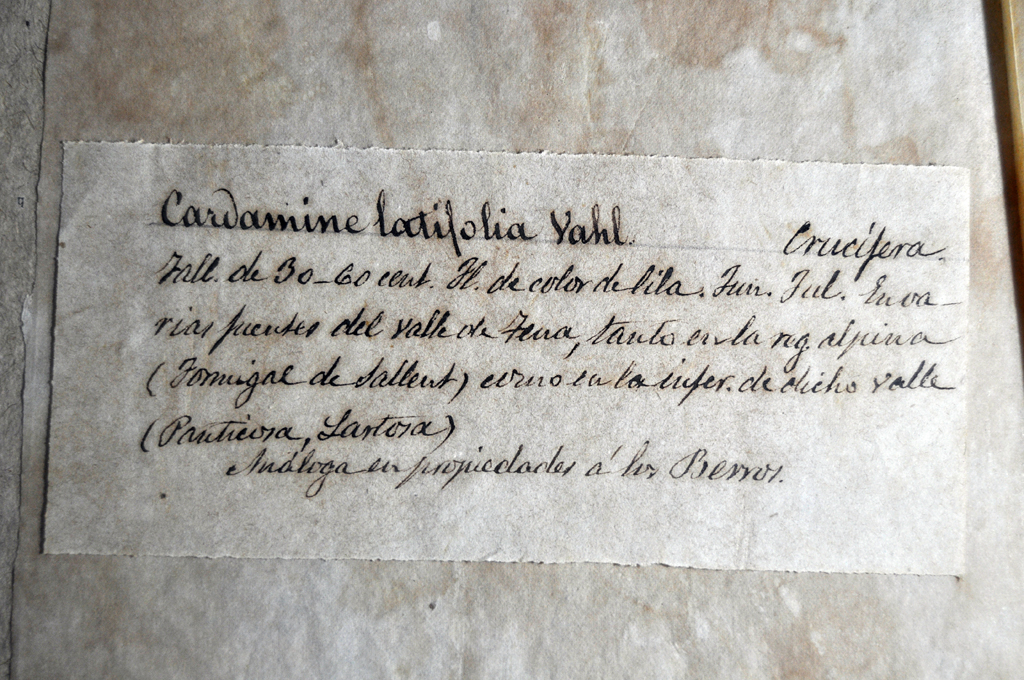 Cardamine latifolia Vahl.
Crucífera.
Tall. de 30-60 cent. Fl. de color de lila. Jun. Jul. En va-
rias fuentes del valle de Tena, tanto en la reg. alpina
(Formigal de Sallent) como en la infer. de dicho valle
(Panticosa, Lartosa)
Análoga en propiedades á los Berros.